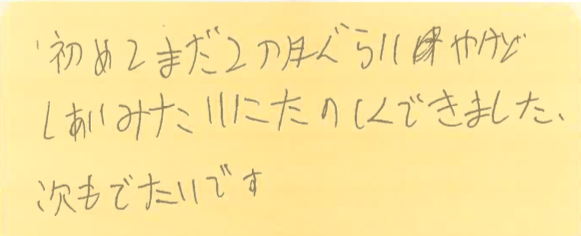 初めてまだ2カ月ぐらいやけど
しあいみたいにたのしくできました、
次もでたいです